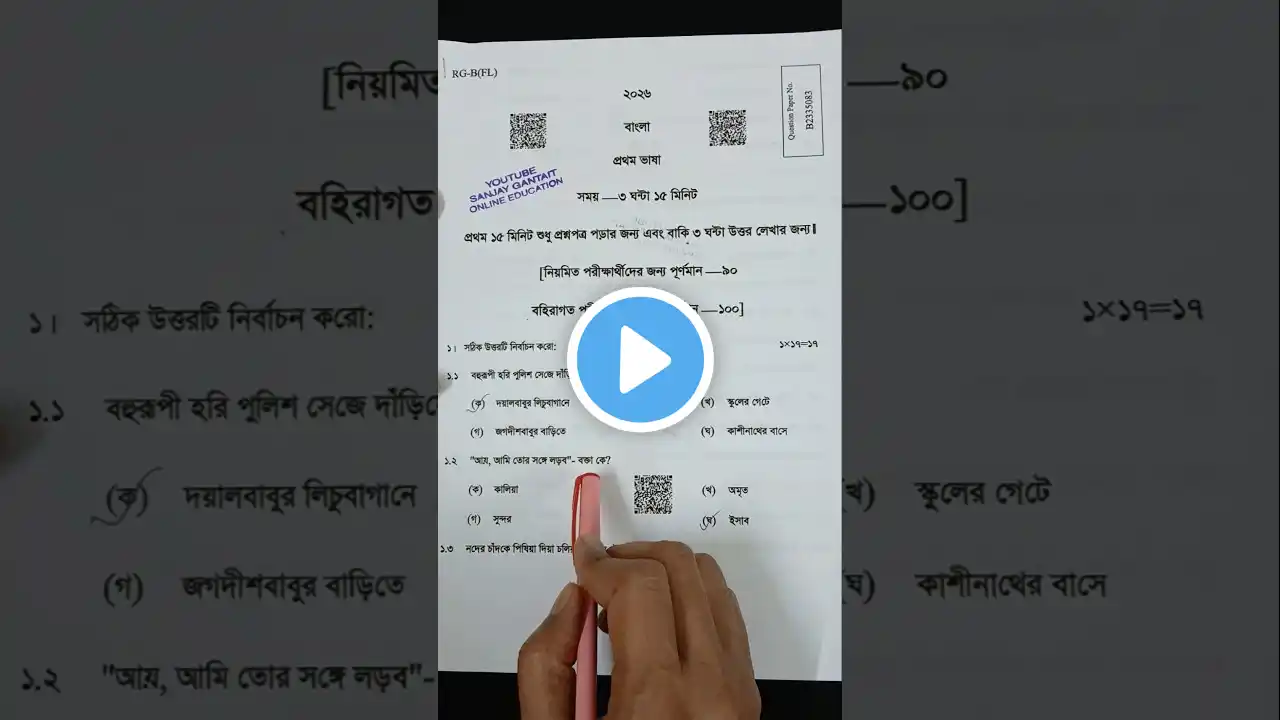 RG-B(FL)
২০২৬
Question Paper No.
B2335083
বাংলা
প্রথম ভাষা
YOUTUBE
SANJAY GANTAIT
ONLINE EDUCATION
সময় —৩ ঘন্টা ১৫ মিনিট
প্রথম ১৫ মিনিট শুধু প্রশ্নপত্র পড়ার জন্য এবং বাকি ৩ ঘন্টা উত্তর লেখার জন্য।
[নিয়মিত পরীক্ষার্থীদের জন্য পূর্ণমান —৯০
বহিরাগত —১০০]
১। সঠিক উত্তরটি নির্বাচন করো: ১×১৭=১৭
১.১ বহুরূপী হরি পুলিশ সেজে
(ক) দয়ালবাবুর লিচুবাগানে (খ) স্কুলের গেটে
(গ) জগদীশবাবুর বাড়িতে (ঘ) কাশীনাথের বাসে
১.২ "আয়, আমি তোর সঙ্গে লড়ব"- বক্তা কে?
(ক) কালিয়া (খ) অমৃত
(গ) সুন্দর (ঘ) ইসাব
১.৩ নদের চাঁদকে পিষিয়া দিয়া